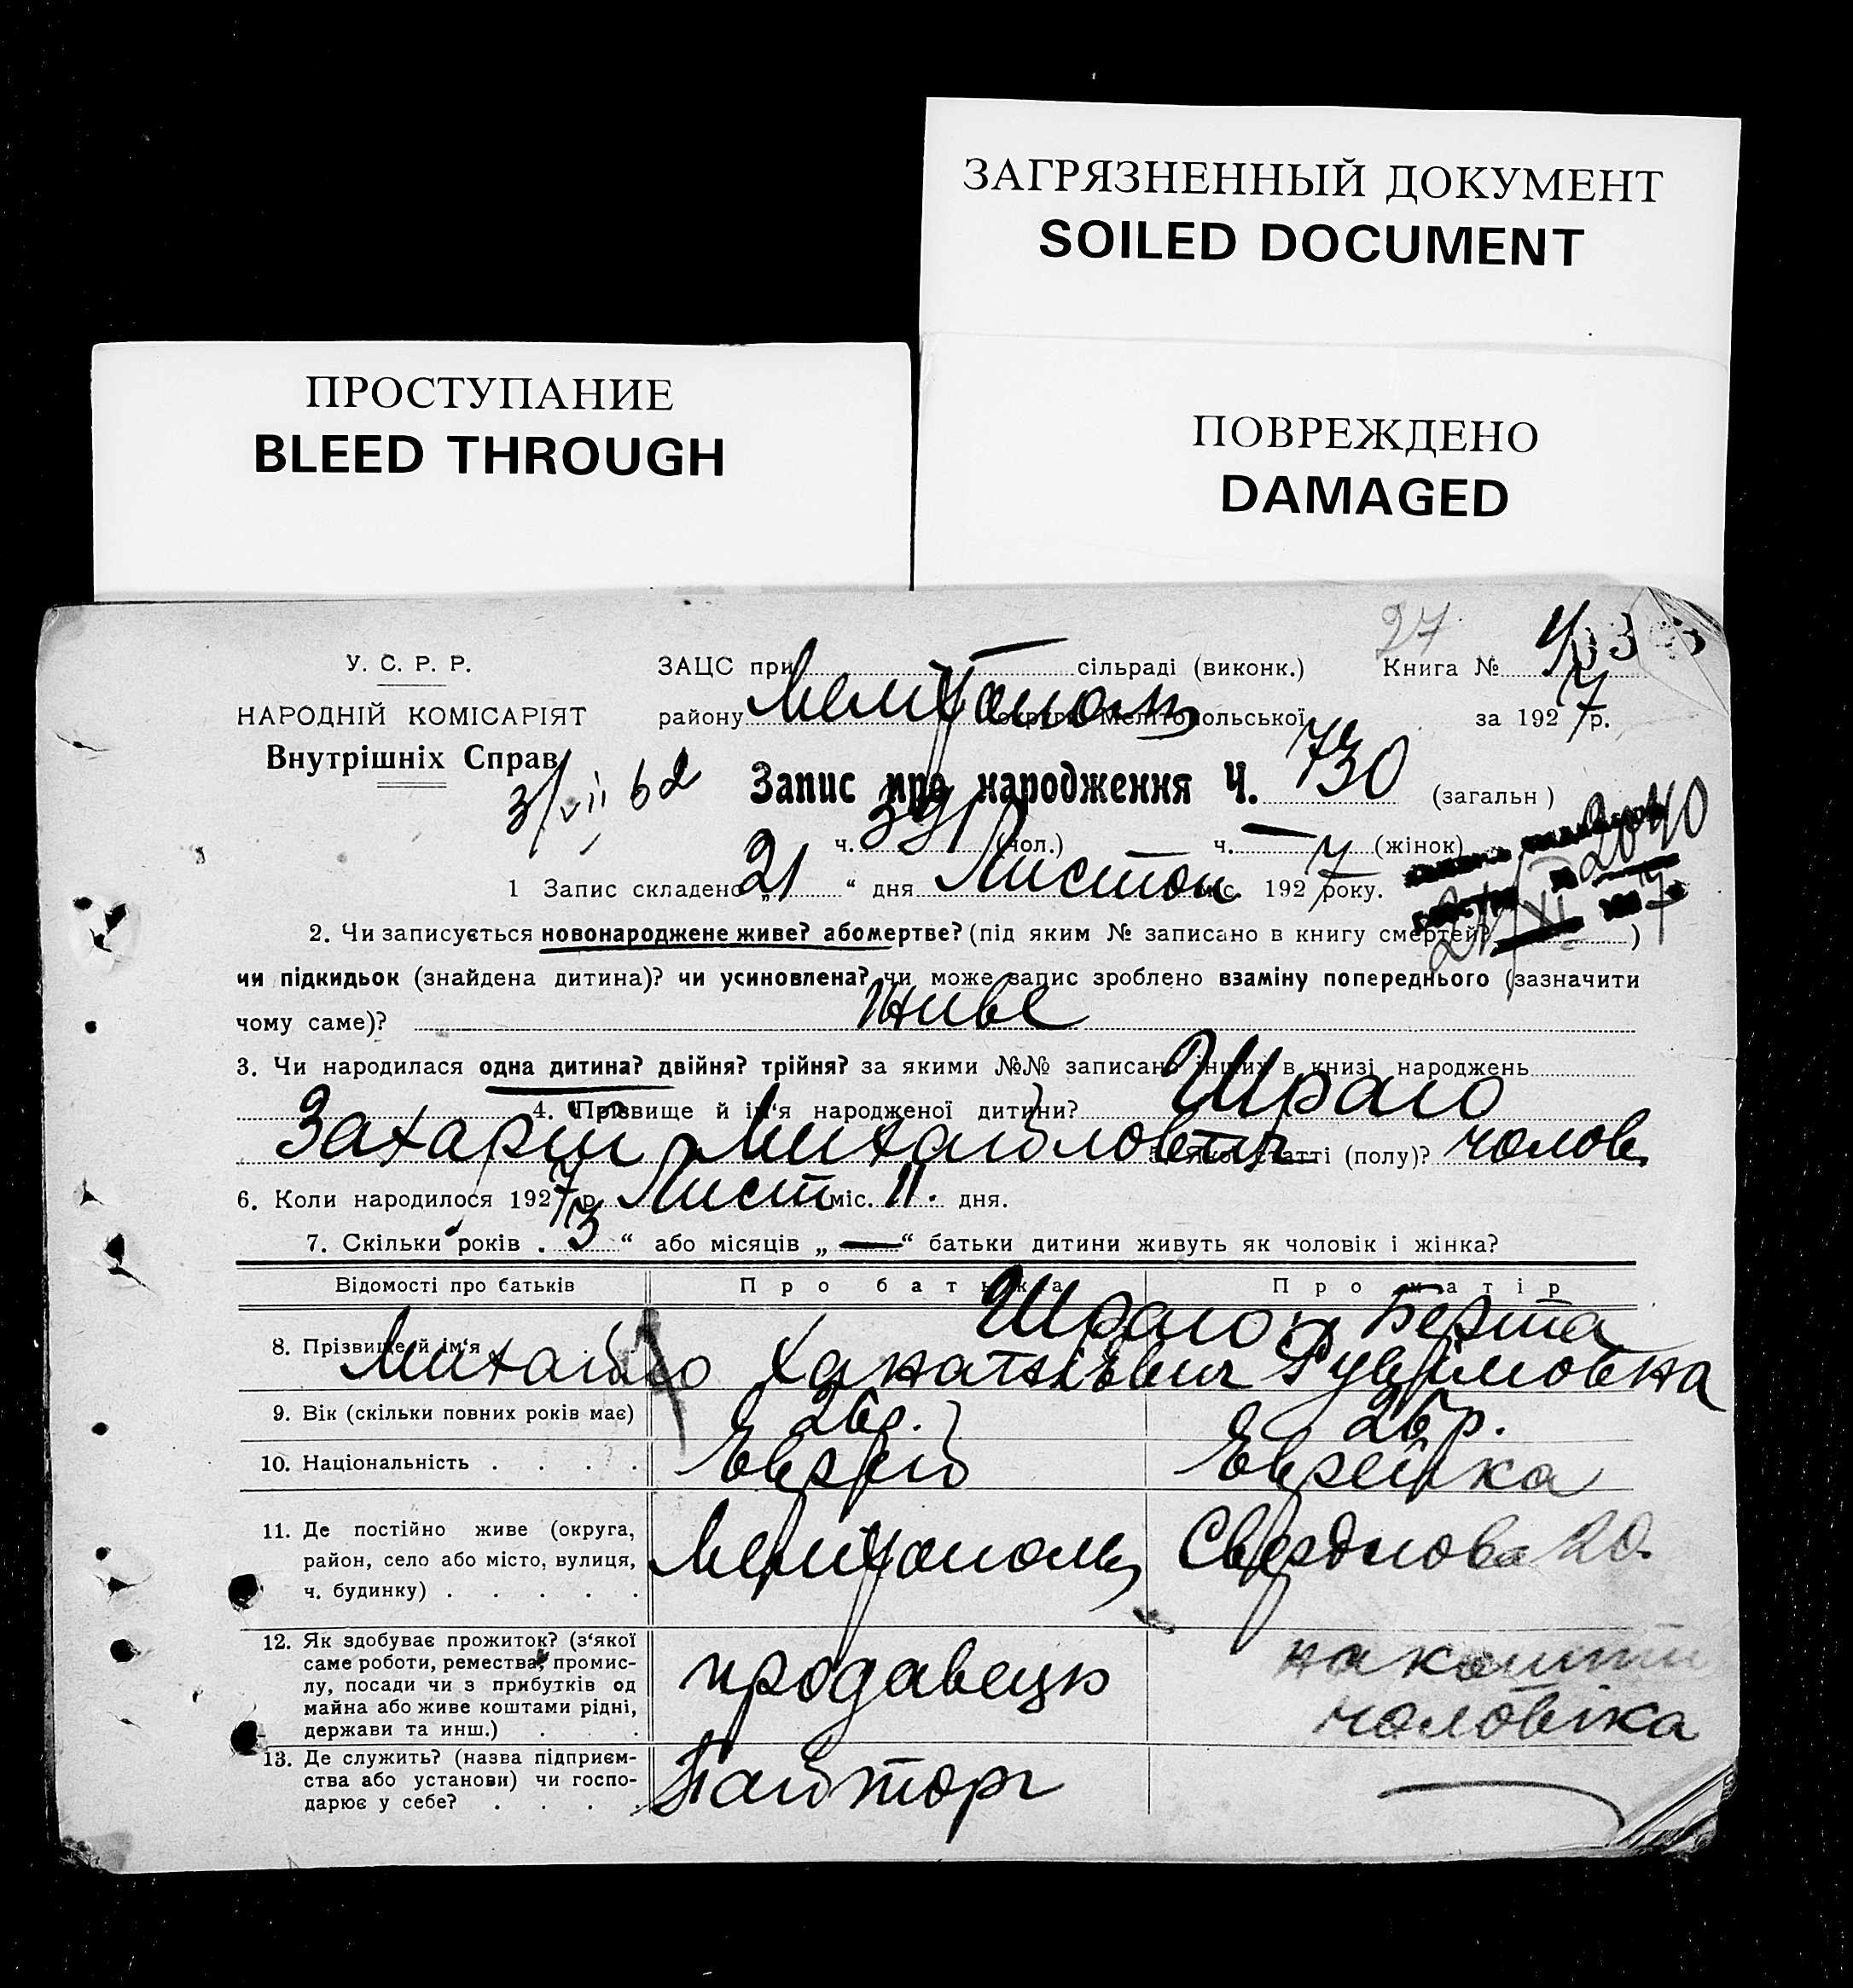 ЗАГРЯЗНЕННЫЙ ДОКУМЕНТ
SOILED DOCUMENT
ПРОСТУПАНИЕ
BLEED THROUGH
ПОВРЕЖДЕНО
DAMAGED
27
У. С. Р. Р.
НАРОДНІЙ КОМІСАРІЯТ
Внутрішніх Справ
3/VII 62
ЗАЦС при сільраді (виконк.) Книга №
району Мелітополь округи Мелітопольської за 1927 р.
Запис про народження Ч. 730 (загальн)
ч. 391 (чол.) ч. — (жінок)
2040
1 Запис складено „21“ дня Листоп міс. 1927 року.
21/XI 7
2. Чи записується новонароджене живе? або мертве? (під яким № записано в книгу смертей? )
чи підкидьок (знайдена дитина)? чи усиновлена? чи може запис зроблено взаміну попереднього (зазначити
чому саме)? Живе
3. Чи народилася одна дитина? двійня? трійня? за якими №№ записано інших в книзі народжень
4. Прізвище й ім‘я народженої дитини? Шраго
Захарій Михайлович 5. якої статті (полу)? чолов.
6. Коли народилося 1927 р. Лист міс. 11. дня.
7. Скільки років „3“ або місяців „—“ батьки дитини живуть як чоловік і жінка?
Відомості про батьків Про батька Про матір
8. Прізвище й ім‘я Шраго Михайло Берта Рувімовна
9. Вік (скільки повних років має) 26р. 26р.
10. Національність . . . . Еврей Еврейка
11. Де постійно живе (округа,
район, село або місто, вулиця,
ч. будинку) . . . . . Мелітополь Свердлова 20.
12. Як здобуває прожиток? (з‘якої
саме роботи, ремества, промис-
лу, посади чи з прибутків од
майна або живе коштами рідні,
держави та инш.) . . . продавець на кошти
чоловіка
13. Де служить? (назва підприєм-
ства або установи) чи госпо-
дарює у себе? . . . . Пайторг